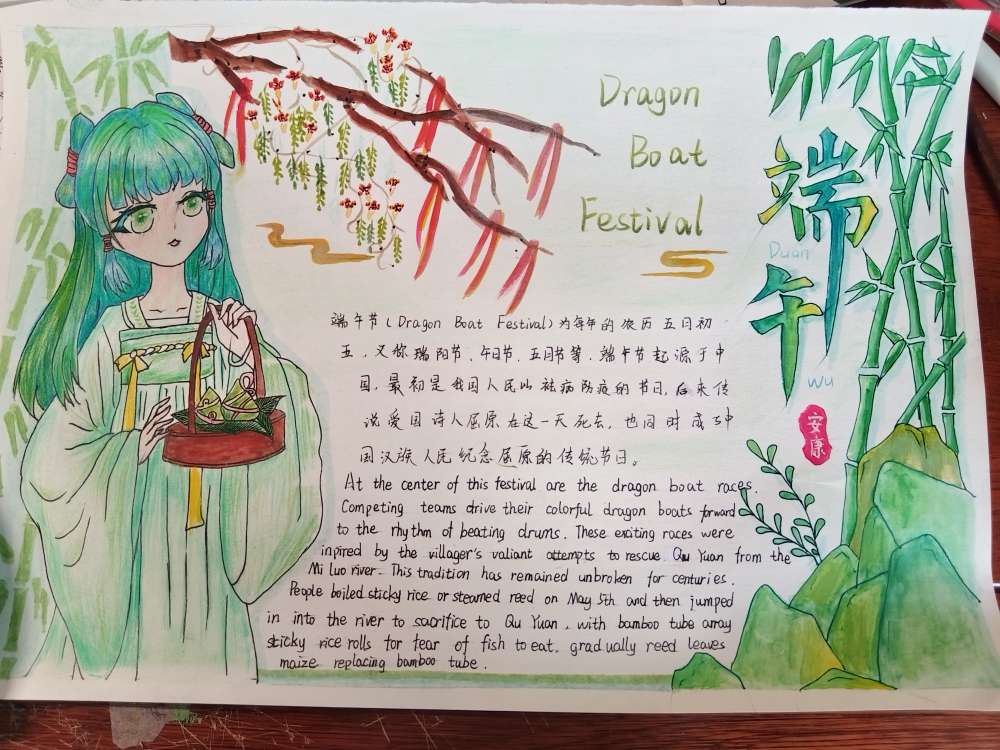 Dragon
Boat
Festival
端
Duan
午
Wu
安
康
端午节(Dragon Boat Festival)为每年的农历五月初
五,又称端阳节、午日节、五月节等,端午节起源于中
国,最初是我国人民以祛病防疫的节日,后来传
说爱国诗人屈原在这一天死去,也同时成了中
国汉族人民纪念屈原的传统节日。
At the center of this festival are the dragon boat races.
Competing teams drive their colorful dragon boats forward
to the rhythm of beating drums. These exciting races were
inpired by the villager's valiant attempts to rescue Qu Yuan from the
Mi luo river. This tradition has remained unbroken for centuries.
People boiled sticky rice or steamed reed on May 5th and then jumped
in into the river to sacrifice to Qu Yuan, with bamboo tube array
sticky rice rolls for fear of fish to eat, gradually reed leaves
maize replacing bamboo tube.